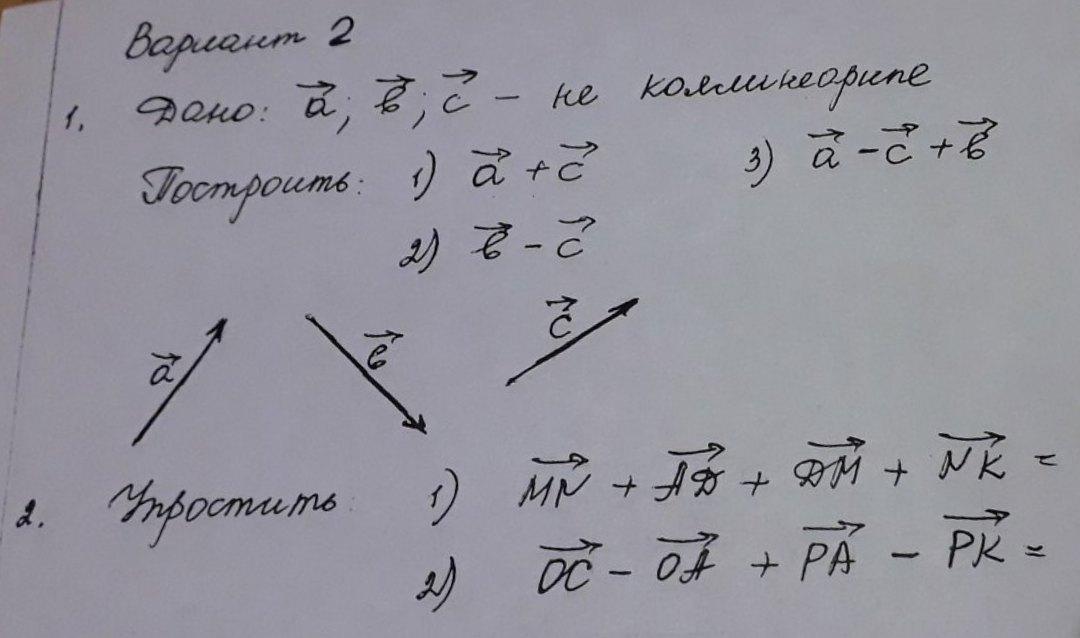 Вариант 2
1. Дано: a⃗; b⃗; c⃗ – не коллинеарные
Построить: 1) a⃗ + c⃗ 3) a⃗ – c⃗ + b⃗
2) b⃗ – c⃗
a⃗ b⃗ c⃗
2. Упростить: 1) MN⃗ + AD⃗ + DM⃗ + NK⃗ =
2) OC⃗ – OA⃗ + PA⃗ – PK⃗ =